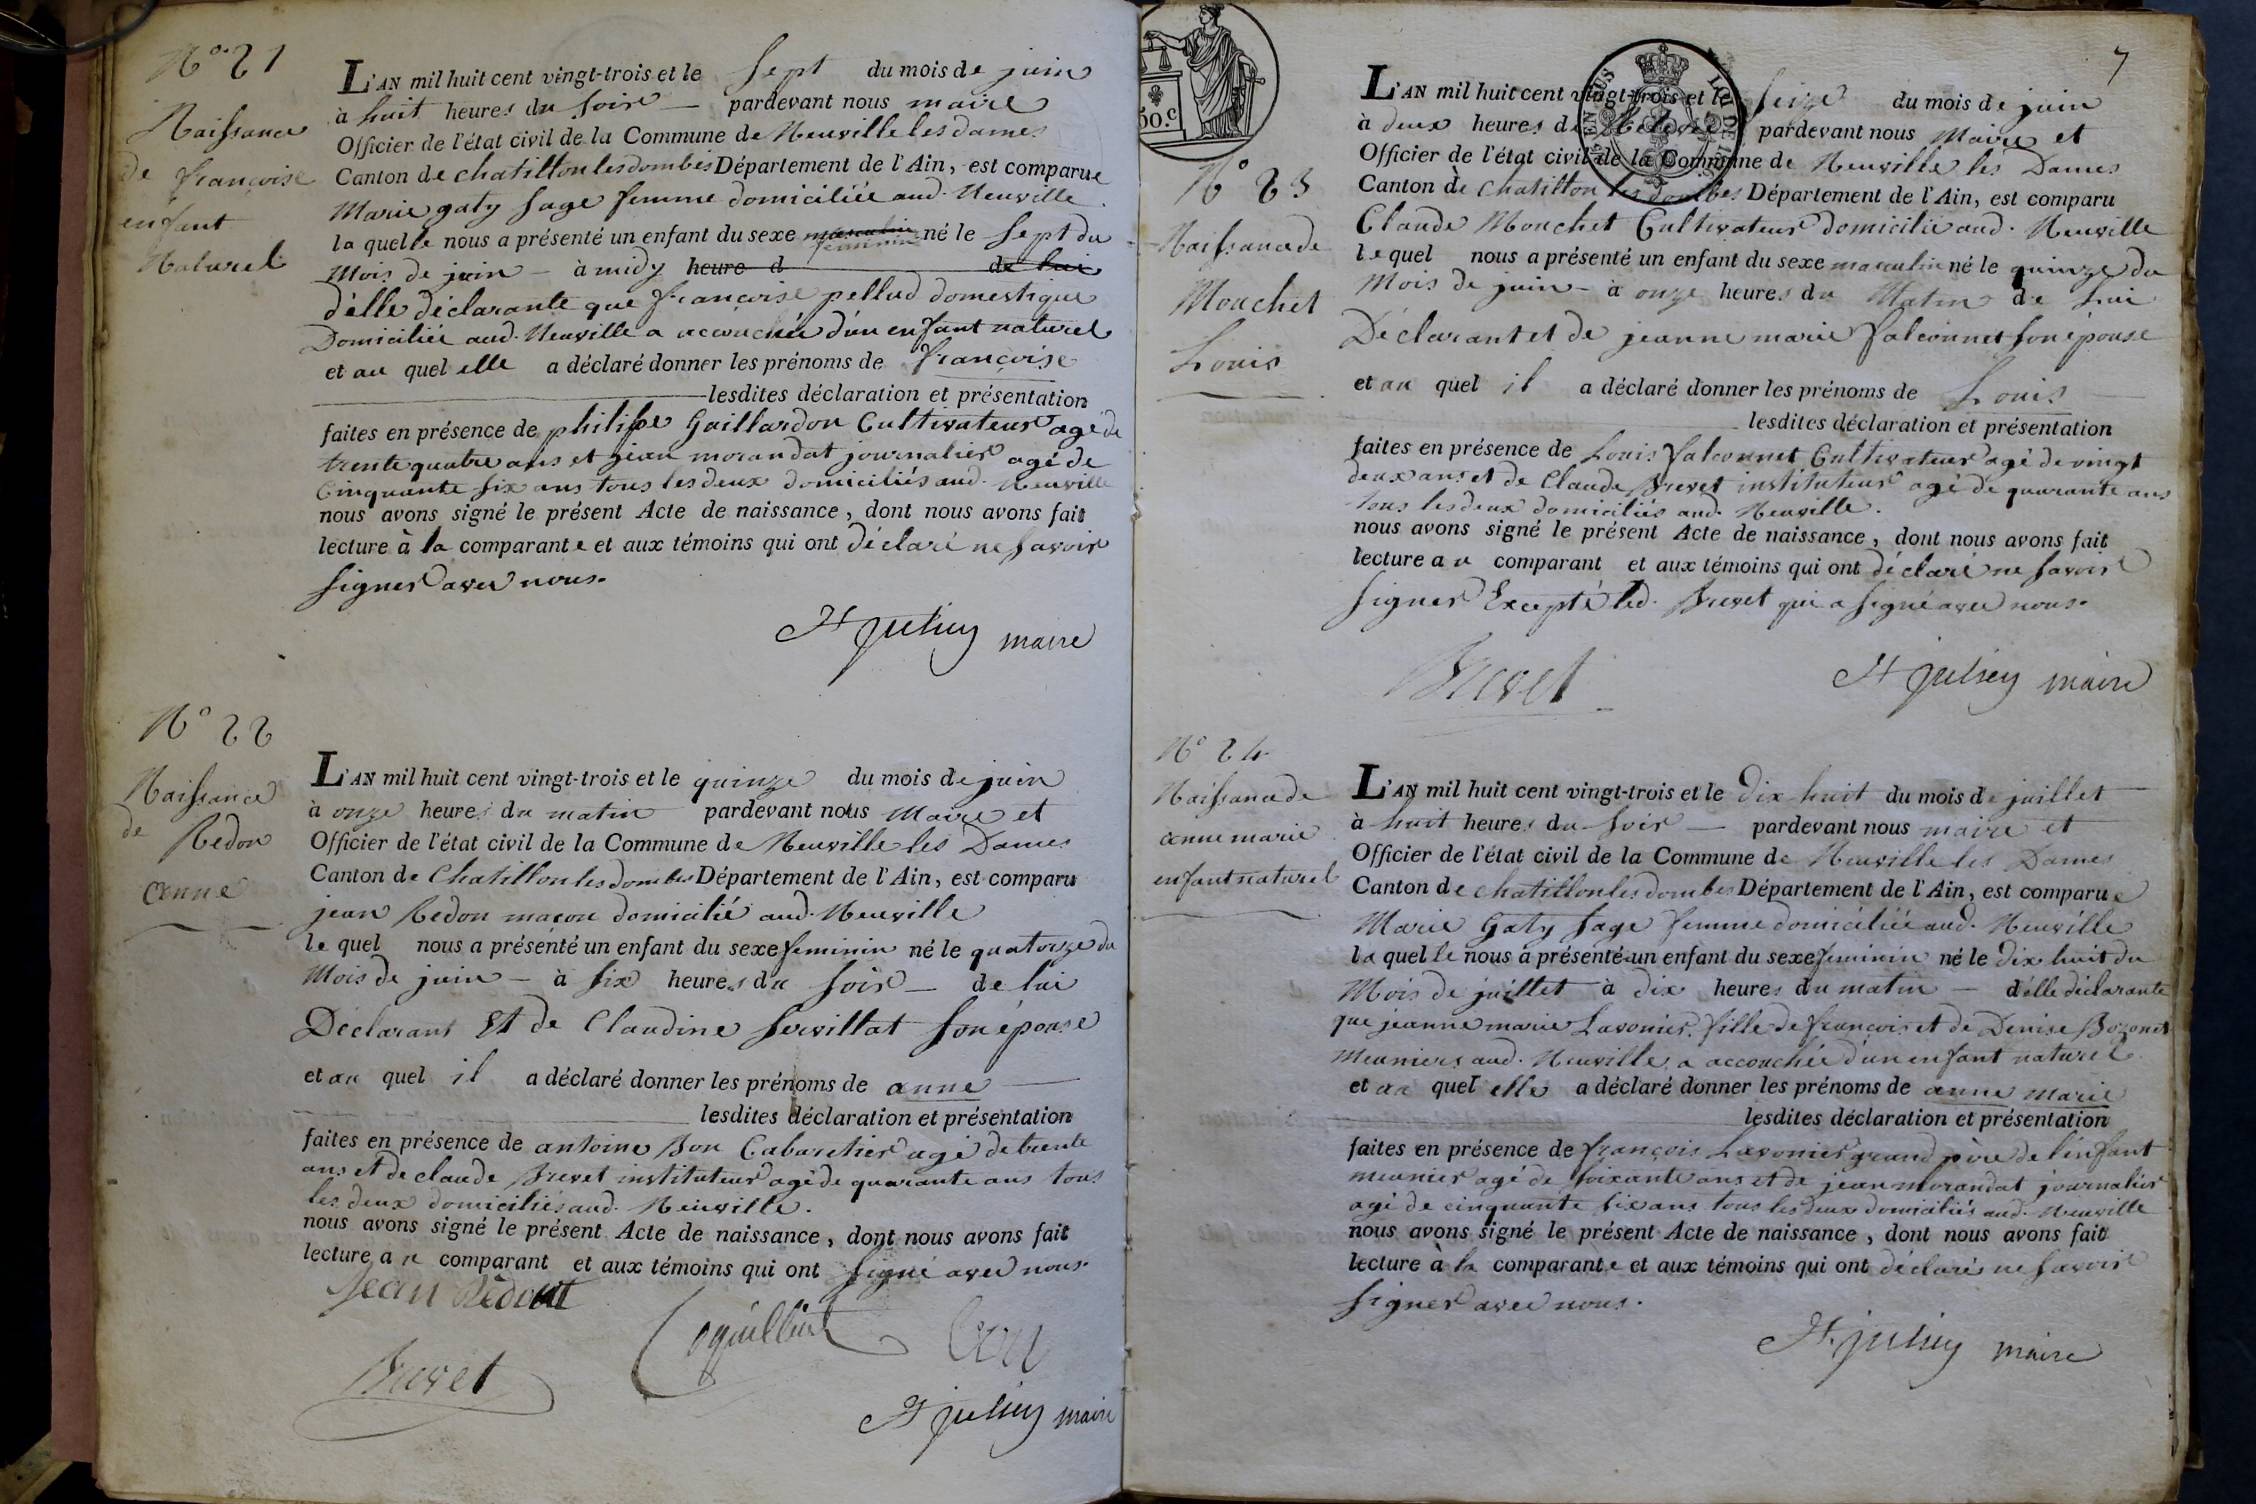 N° 21
Naissance
de françoise
enfant
Naturel
L'AN mil huit cent vingt-trois et le sept du mois de juin
à huit heures du soir — pardevant nous maire
Officier de l'état civil de la Commune de Neuville les dames
Canton de chatillon les dombes Département de l'Ain, est comparue
Marie gaty sage femme domiciliée aud. Neuville
la quelle nous a présenté un enfant du sexe masculin feminin né le sept du
Mois de juin — à midy heure d de lui
d'elle déclarante que françoise pellud domestique
Domiciliée aud. Neuville a accouchée d'un enfant naturel
et au quel elle a déclaré donner les prénoms de françoise
lesdites déclaration et présentation
faites en présence de philipe Gaillardon Cultivateur agé de
trente quatre ans et jean morandat journalier agé de
Cinquante six ans tous les deux domiciliés aud. Neuville
nous avons signé le présent Acte de naissance, dont nous avons fait
lecture à la comparante et aux témoins qui ont déclaré ne savoir
signer avec nous.
St julien maire
N° 22
Naissance
de Redon
anne
L'AN mil huit cent vingt-trois et le quinze du mois de juin
à onze heures du matin pardevant nous Maire et
Officier de l'état civil de la Commune de Neuville les Dames
Canton de Chatillon les dombes Département de l'Ain, est comparu
jean Redon maçon domicilié aud. Neuville
le quel nous a présenté un enfant du sexe feminin né le quatorze du
Mois de juin — à six heures du soir — de lui
Déclarant Et de Claudine Servillat son épouse
et au quel il a déclaré donner les prénoms de anne
lesdites déclaration et présentation
faites en présence de antoine Bon Cabaretier agé de trente
ans et de claude Brevet instituteur agé de quarante ans tous
les deux domiciliés aud. Neuville.
nous avons signé le présent Acte de naissance, dont nous avons fait
lecture au comparant et aux témoins qui ont signé avec nous.
Jean Redont
Brevet
St julien maire
7
50.c
N° 23
Naissance de
Mouchet
Louis
L'AN mil huit cent vingt-trois et le seize du mois de juin
à deux heures de pardevant nous Maire et
Officier de l'état civil de la Commune de Neuville les Dames
Canton de Chatillon les dombes Département de l'Ain, est comparu
Claude Mouchet Cultivateur domicilié aud. Neuville
le quel nous a présenté un enfant du sexe masculin né le quinze du
Mois de juin — à onze heures du Matin de lui
Déclarant et de jeanne marie falconnet son épouse
et au quel il a déclaré donner les prénoms de Louis
lesdites déclaration et présentation
faites en présence de Louis falconnet Cultivateur agé de vingt
deux ans et de Claude Brevet instituteur agé de quarante ans
tous les deux domiciliés aud. Neuville.
nous avons signé le présent Acte de naissance, dont nous avons fait
lecture au comparant et aux témoins qui ont déclaré ne savoir
signer Excepté led. Brevet qui a signé avec nous.
Brevet
St julien maire
N° 24
Naissance de
anne marie
enfant naturel
L'AN mil huit cent vingt-trois et le dix huit du mois de juillet
à huit heures du soir — pardevant nous maire et
Officier de l'état civil de la Commune de Neuville les Dames
Canton de chatillon les dombes Département de l'Ain, est comparue
Marie Gaty sage femme domiciliée aud. Neuville
la quelle nous a présenté un enfant du sexe feminin né le dix huit du
Mois de juillet à dix heures du matin — d'elle déclarante
que jeanne marie Lavonier fille de françois et de Denise Bozonet
Meuniers aud. Neuville a accouchée d'un enfant naturel
et au quel elle a déclaré donner les prénoms de anne marie
lesdites déclaration et présentation
faites en présence de françois Lavonier grand père de l'enfant
meunier agé de soixante ans et de jean morandat journalier
agé de cinquante six ans tous les deux domiciliés aud. Neuville
nous avons signé le présent Acte de naissance, dont nous avons fait
lecture à la comparante et aux témoins qui ont déclaré ne savoir
signer avec nous.
St julien maire